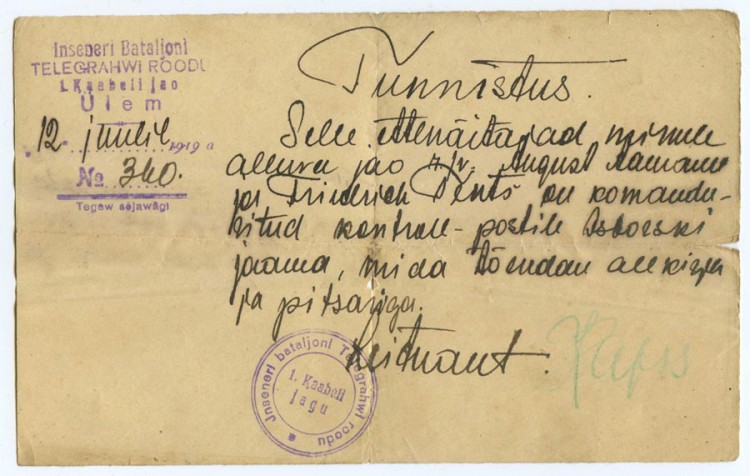 Inseneri Bataljoni
TELEGRAHWI ROODU
1. Kaabeli jao
Ülem
12. juulil 1919 a
№ 340.
Tegew sõjawägi
Tunnistus.
Selle ettenäitajad minule
alluva jao n/v. August
ja Friedrich on komandee-
ritud kontroll-postile Isborski
jaama, mida tõendan allkirja
ja pitsariga.
Leitnant.
Inseneri bataljoni Telegrahwi roodu
1. Kaabeli
jagu